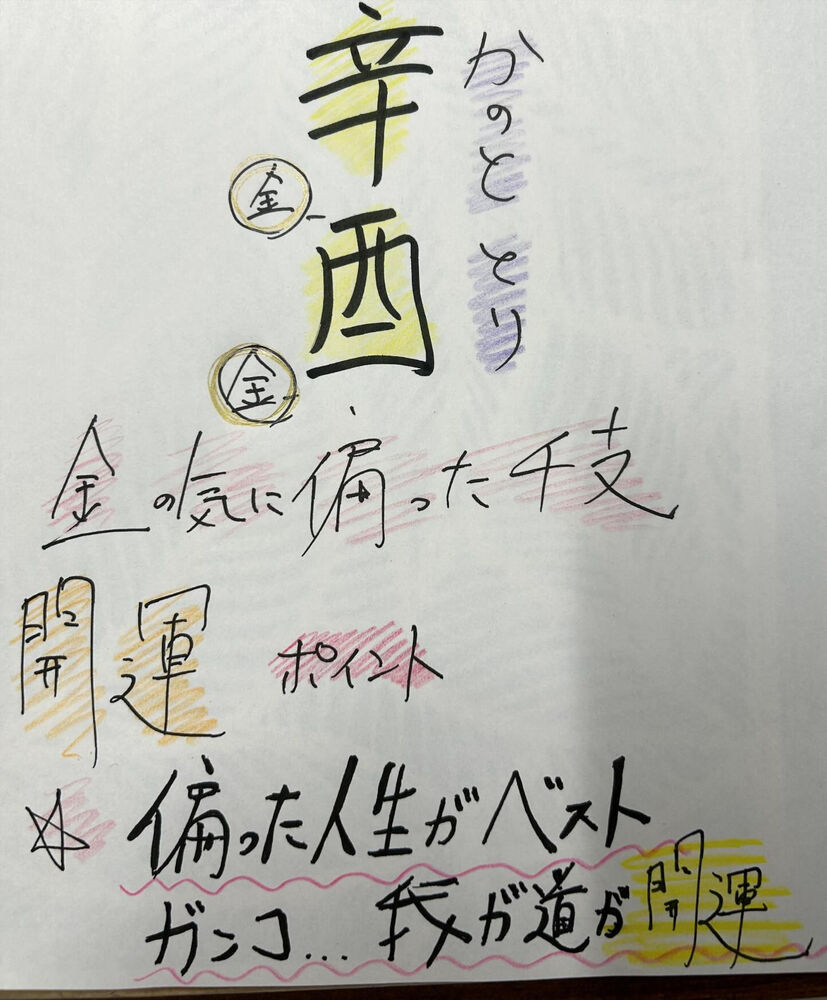 辛酉
かのと とり
金
金
金の気に偏った干支
開運 ポイント
☆ 偏った人生がベスト
ガンコ... 我が道が開運